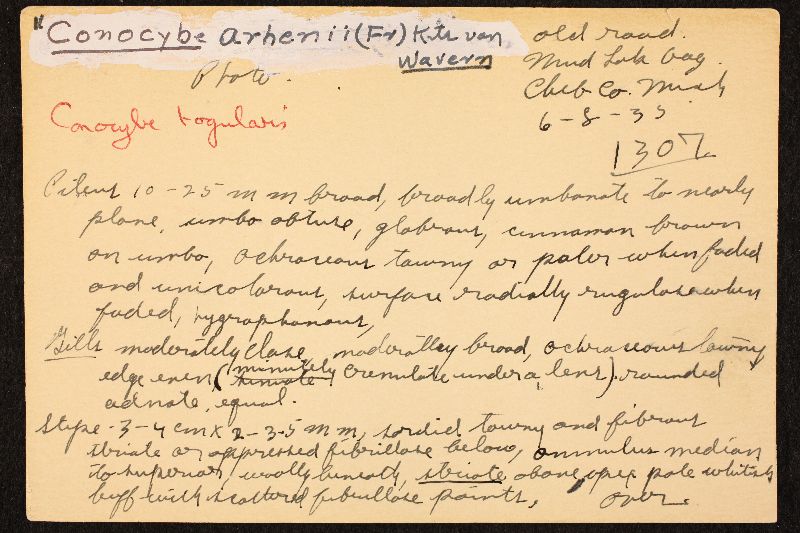 " Conocybe arhenii (Fr) Kits van
Wavern
old road.
Mud Lake bog.
Cheb Co. Mich
6-8-35
1307
Photo.
Conocybe togularis
Pileus 10-25 mm broad, broadly umbonate to nearly
plane, umbo obtuse, glabrous, cinnamon brown
on umbo, ochraceous tawny or paler when faded
and unicolorous, surface radially rugulose when
faded, hygrophanous,
Gills moderately close moderatley broad, ochraceous tawny
edge even (minutely crenulate under a lens). rounded
adnate, equal.
Stipe 3-4 cm x 2-3.5 mm, sordid tawny and fibrous
striate or appressed fibrillose below, annulus median
to superior, woolly beneath, striate above, apex pale whitish
buff with scattered fibrillose points, over.